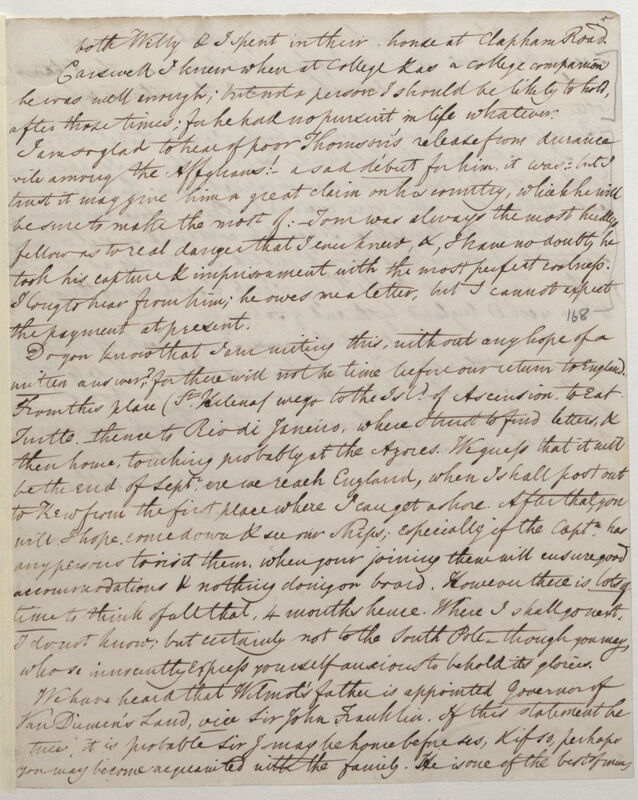 both Welby & I spent in their house at Clapham Road.
Carswell I knew when at College & as a college companion
he was well enough; but not a person I should be likely to hold,
after those times; for he had no pursuit in life whatever.
I am so glad to hear of poor Thomson's release from durance
vile among the Affghans! a sad début for him, it was: but I
trust it may give him a great claim on his country, which he will
be sure to make the most of: – Tom was always the most heedless
fellow as to real danger that I ever knew, &, I have no doubt, he
took his capture & imprisonment with the most perfect coolness.
I long to hear from him; he owes me a letter, but I cannot expect
the payment at present.
168
Do you know that I am writing this, without any hope of a
written answer? for there will not be time before our return to England.
From this place (St. Helena) we go to the Isld. of Ascension, to Eat
Turtle – thence to Rio di Janeiro, where I trust to find letters, &
then home, touching probably at the Azores. We guess that it will
be the end of Septr. ere we reach England, when I shall post out
to Kew from the first place where I can get ashore. After that you
will I hope, come down & see our ships; especially if the Captn. has
any persons to visit them, when your joining them will ensure good
accommodations & nothing doing on board. However there is lots of
time to think of all that, 4 months hence. Where I shall go next,
I do not know; but certainly not to the South Pole – though you may,
who so innocently Express yourself anxious to behold its glories.
We have heard that Wilmot's father is appointed Governor of
Van Diemen's Land, vice Sir John Franklin. If this statement be
true, it is probable Sir J. may be home before us, & if so, perhaps
you may become acquainted with the family. He is one of the best of men,